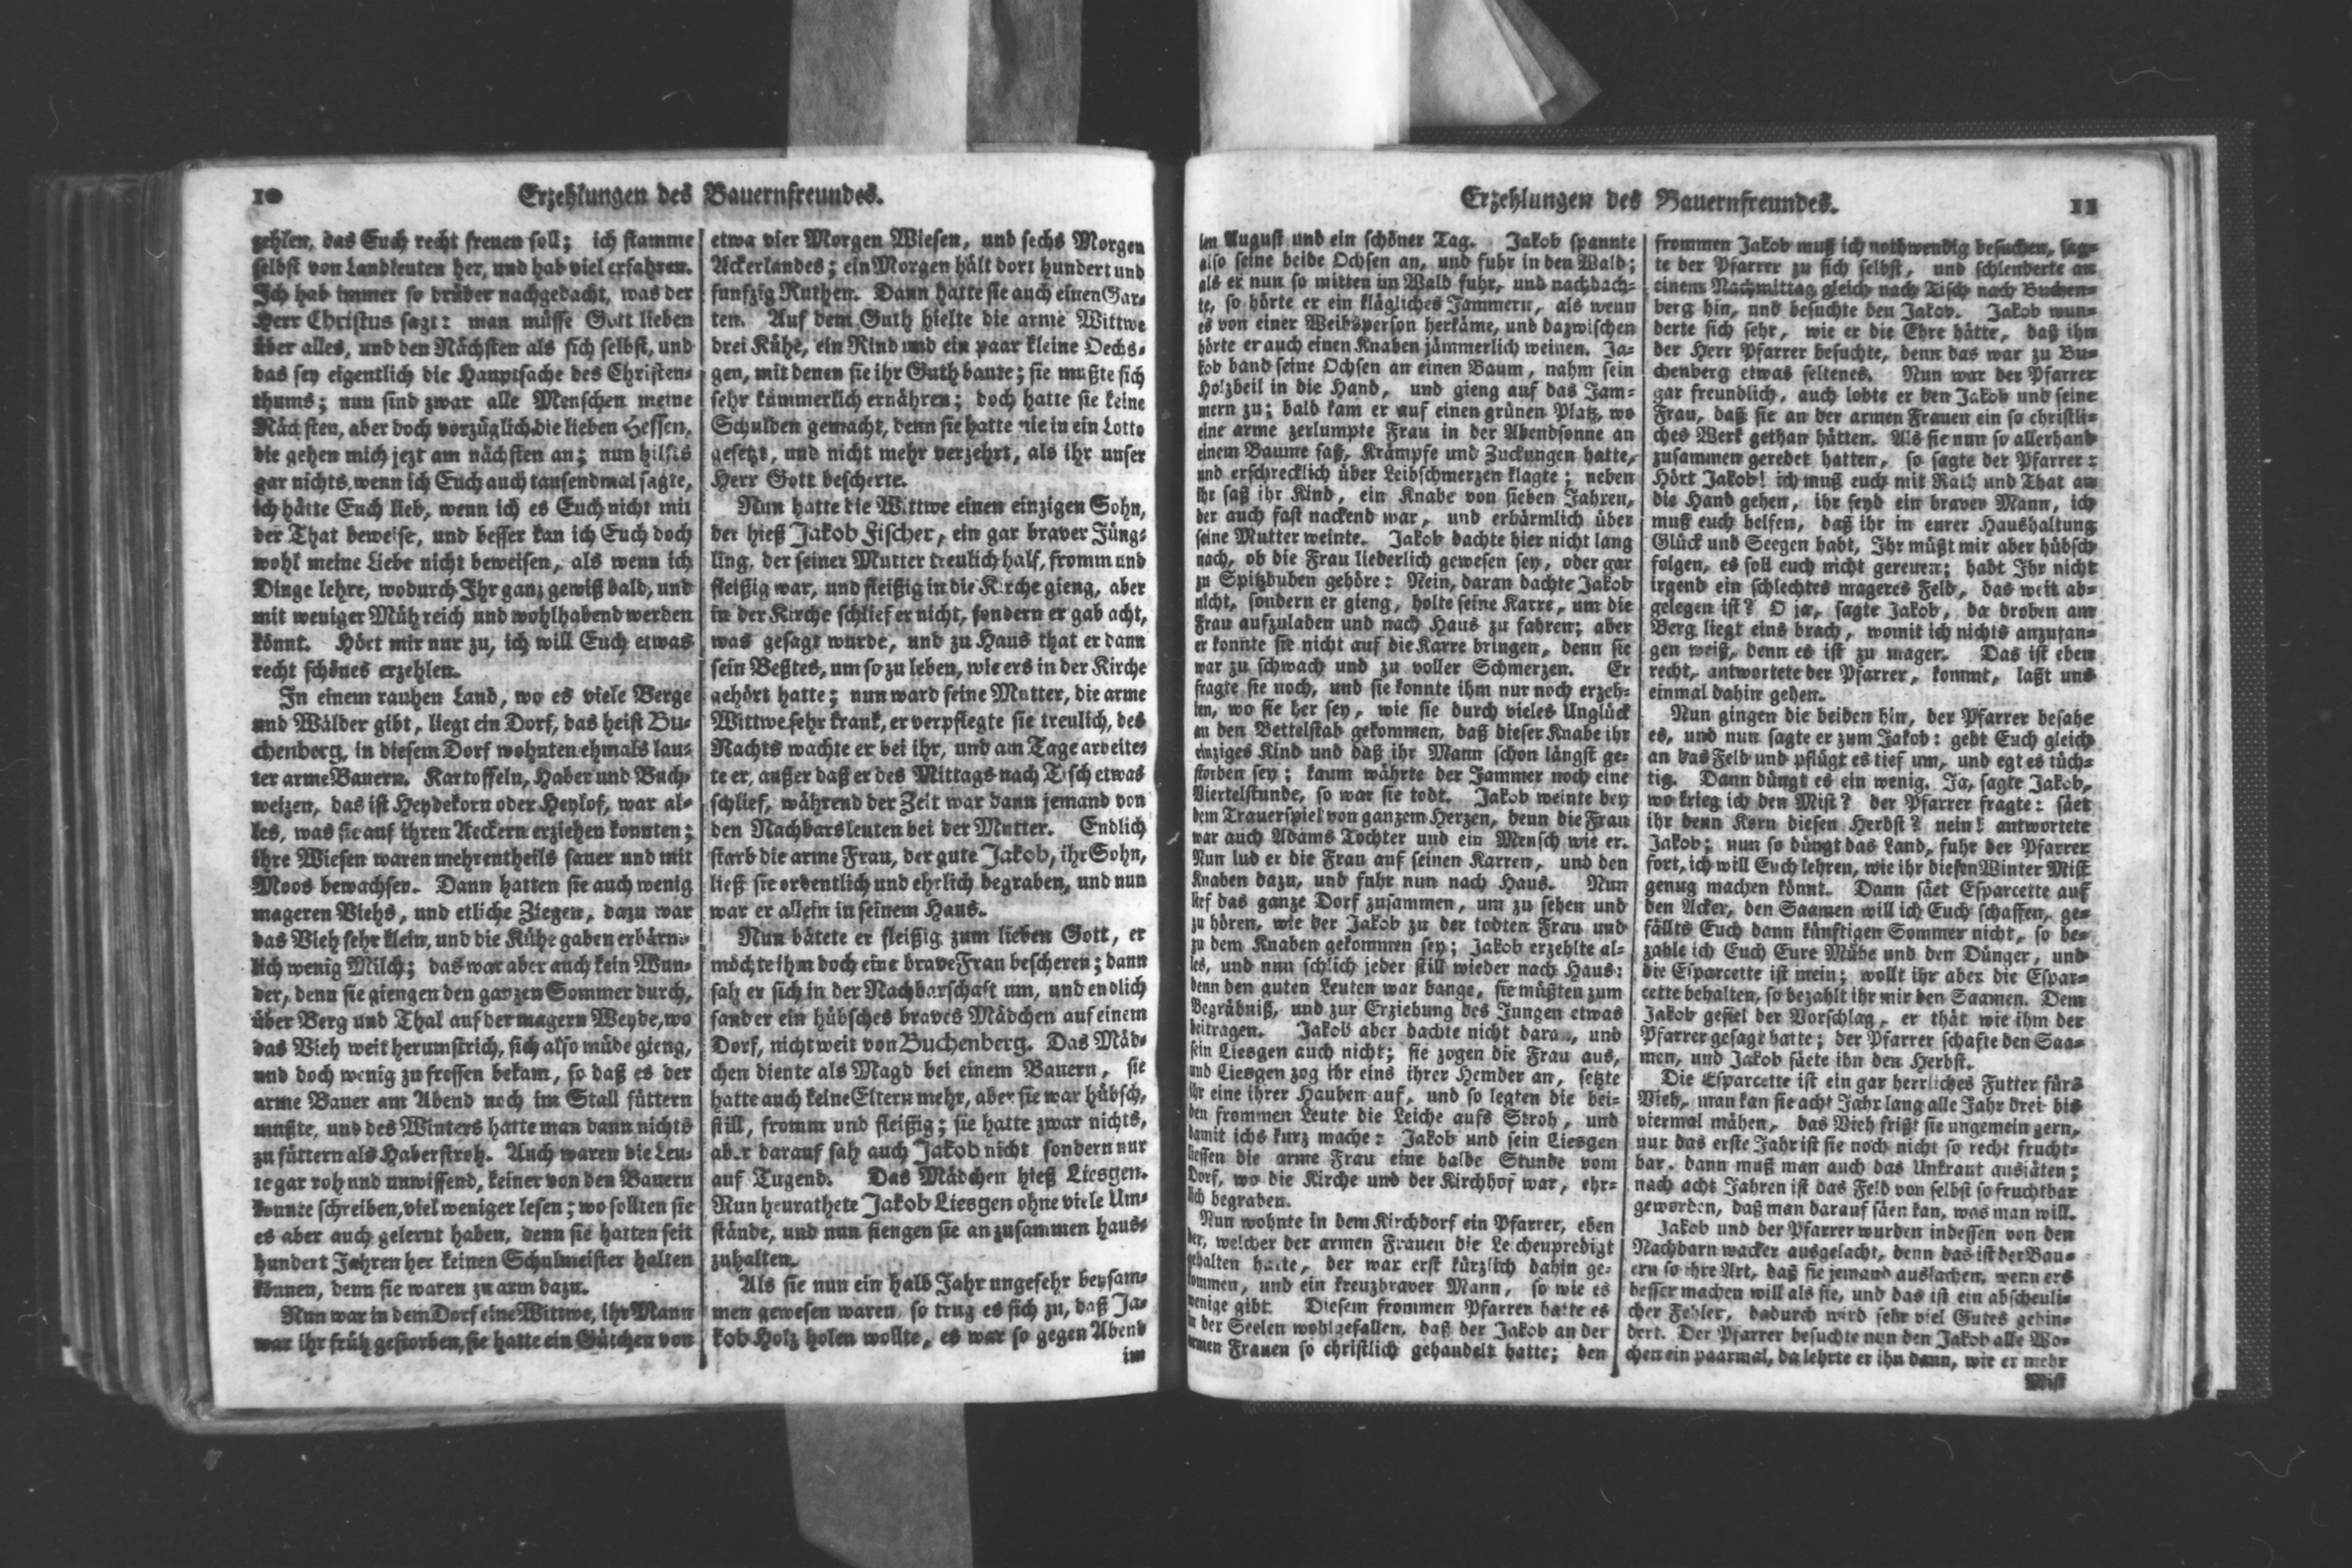 10
Erzehlungen des Bauernfreundes.
zehlen, das Euch recht freuen soll; ich stamme
selbst von Landleuten her, und hab viel erfahren.
Ich hab immer so drüber nachgedacht, was der
Herr Christus sagt: man müsse Gott lieben
über alles, und den Nächsten als sich selbst, und
das sey eigentlich die Hauptsache des Christen-
thums; nun sind zwar alle Menschen meine
Nächsten, aber doch vorzüglich die lieben Hessen,
die gehen mich jezt am nächsten an; nun hilfts
gar nichts, wenn ich Euch auch tausendmal sagte,
ich hätte Euch lieb, wenn ich es Euch nicht mit
der That beweise, und besser kan ich Euch doch
wohl meine Liebe nicht beweisen, als wenn ich
Dinge lehre, wodurch Ihr ganz gewiß bald, und
mit weniger Müh reich und wohlhabend werden
könnt. Hört mir nur zu, ich will Euch etwas
recht schönes erzehlen.
In einem rauhen Land, wo es viele Berge
und Wälder gibt, liegt ein Dorf, das heist Bu-
chenberg, in diesem Dorf wohnten ehmals lau-
ter arme Bauern. Kartoffeln, Haber und Buch-
weizen, das ist Heydekorn oder Heylof, war al-
les, was sie auf ihren Aeckern erziehen konnten;
ihre Wiesen waren mehrentheils sauer und mit
Moos bewachsen. Dann hatten sie auch wenig
mageren Viehs, und etliche Ziegen, dazu war
das Vieh sehr klein, und die Kühe gaben erbärm-
lich wenig Milch; das war aber auch kein Wun-
der, denn sie giengen den ganzen Sommer durch,
über Berg und Thal auf der magern Weyde, wo
das Vieh weit herumstrich, sich also müde gieng,
und doch wenig zu fressen bekam, so daß es der
arme Bauer am Abend noch im Stall füttern
mußte, und des Winters hatte man dann nichts
zu füttern als Haberstroh. Auch waren die Leu-
te gar roh und unwissend, keiner von den Bauern
konnte schreiben, viel weniger lesen; wo sollten sie
es aber auch gelernt haben, denn sie hatten seit
hundert Jahren her keinen Schulmeister halten
können, denn sie waren zu arm dazu.
Nun war in dem Dorf eine Wittwe, ihr Mann
war ihr früh gestorben, sie hatte ein Gütchen von
etwa vier Morgen Wiesen, und sechs Morgen
Ackerlandes; ein Morgen hält dort hundert und
funfzig Ruthen. Dann hatte sie auch einen Gar-
ten. Auf dem Guth hielte die arme Wittwe
drei Kühe, ein Rind und ein paar kleine Oechs-
gen, mit denen sie ihr Guth baute; sie mußte sich
sehr kümmerlich ernähren; doch hatte sie keine
Schulden gemacht, denn sie hatte nie in ein Lotto
gesetzt, und nicht mehr verzehrt, als ihr unser
Herr Gott bescherte.
Nun hatte die Wittwe einen einzigen Sohn,
der hieß Jakob Fischer, ein gar braver Jüng-
ling, der seiner Mutter treulich half, fromm und
fleißig war, und fleißig in die Kirche gieng, aber
in der Kirche schlief er nicht, sondern er gab acht,
was gesagt wurde, und zu Haus that er dann
sein Beßtes, um so zu leben, wie ers in der Kirche
gehört hatte; nun ward seine Mutter, die arme
Wittwe sehr krank, er verpflegte sie treulich, des
Nachts wachte er bei ihr, und am Tage arbeite-
te er, außer daß er des Mittags nach Tisch etwas
schlief, während der Zeit war dann jemand von
den Nachbarsleuten bei der Mutter. Endlich
starb die arme Frau, der gute Jakob, ihr Sohn,
ließ sie ordentlich und ehrlich begraben, und nun
war er allein in seinem Haus.
Nun bätete er fleißig zum lieben Gott, er
möchte ihm doch eine brave Frau bescheren; dann
sah er sich in der Nachbarschaft um, und endlich
fand er ein hübsches braves Mädchen auf einem
Dorf, nicht weit von Buchenberg. Das Mäd-
chen diente als Magd bei einem Bauern, sie
hatte auch keine Eltern mehr, aber sie war hübsch,
still, fromm und fleißig; sie hatte zwar nichts,
aber darauf sah auch Jakob nicht sondern nur
auf Tugend. Das Mädchen hieß Liesgen.
Nun heurathete Jakob Liesgen ohne viele Um-
stände, und nun fiengen sie an zusammen haus-
zuhalten.
Als sie nun ein halb Jahr ungefehr beysam-
men gewesen waren, so trug es sich zu, daß Ja-
kob Holz holen wollte, es war so gegen Abend
im
Erzehlungen des Bauernfreundes.
11
im August und ein schöner Tag. Jakob spannte
also seine beide Ochsen an, und fuhr in den Wald;
als er nun so mitten im Wald fuhr, und nachdach-
te, so hörte er ein klägliches Jammern, als wenn
es von einer Weibsperson herkäme, und dazwischen
hörte er auch einen Knaben jämmerlich weinen. Ja-
kob band seine Ochsen an einen Baum, nahm sein
Holzbeil in die Hand, und gieng auf das Jam-
mern zu; bald kam er auf einen grünen Platz, wo
eine arme zerlumpte Frau in der Abendsonne an
einem Baume saß, Krämpfe und Zuckungen hatte,
und erschrecklich über Leibschmerzen klagte; neben
ihr saß ihr Kind, ein Knabe von sieben Jahren,
der auch fast nackend war, und erbärmlich über
seine Mutter weinte. Jakob dachte hier nicht lang
nach, ob die Frau liederlich gewesen sey, oder gar
zu Spitzbuben gehöre: Nein, daran dachte Jakob
nicht, sondern er gieng, holte seine Karre, um die
Frau aufzuladen und nach Haus zu fahren; aber
er konnte sie nicht auf die Karre bringen, denn sie
war zu schwach und zu voller Schmerzen. Er
fragte sie noch, und sie konnte ihm nur noch erzeh-
len, wo sie her sey, wie sie durch vieles Unglück
an den Bettelstab gekommen, daß dieser Knabe ihr
einziges Kind und daß ihr Mann schon längst ge-
storben sey; kaum währte der Jammer noch eine
Viertelstunde, so war sie todt. Jakob weinte bey
dem Trauerspiel von ganzem Herzen, denn die Frau
war auch Adams Tochter und ein Mensch wie er.
Nun lud er die Frau auf seinen Karren, und den
Knaben dazu, und fuhr nun nach Haus. Nun
lief das ganze Dorf zusammen, um zu sehen und
zu hören, wie der Jakob zu der todten Frau und
zu dem Knaben gekommen sey; Jakob erzehlte al-
les, und nun schlich jeder still wieder nach Haus:
denn den guten Leuten war bange, sie müßten zum
Begräbniß, und zur Erziehung des Jungen etwas
beitragen. Jakob aber dachte nicht daran, und
sein Liesgen auch nicht; sie zogen die Frau aus,
und Liesgen zog ihr eins ihrer Hember an, setzte
ihr eine ihrer Hauben auf, und so legten die bei-
den frommen Leute die Leiche aufs Stroh, und
damit ichs kurz mache: Jakob und sein Liesgen
liessen die arme Frau eine halbe Stunde vom
Dorf, wo die Kirche und der Kirchhof war, ehr-
lich begraben.
Nun wohnte in dem Kirchdorf ein Pfarrer, eben
der, welcher der armen Frauen die Leichenpredigt
gehalten hatte, der war erst kürzlich dahin ge-
kommen, und ein kreuzbraver Mann, so wie es
wenige gibt. Diesem frommen Pfarrer hatte es
in der Seelen wohlgefallen, daß der Jakob an der
armen Frauen so christlich gehandelt hatte; den
frommen Jakob muß ich nothwendig besuchen, sag-
te der Pfarrer zu sich selbst, und schlenderte an
einem Nachmittag gleich nach Tisch nach Buchen-
berg hin, und besuchte den Jakob. Jakob wun-
derte sich sehr, wie er die Ehre hätte, daß ihn
der Herr Pfarrer besuchte, denn das war zu Bu-
chenberg etwas seltenes. Nun war der Pfarrer
gar freundlich, auch lobte er den Jakob und seine
Frau, daß sie an der armen Frauen ein so christli-
ches Werk gethan hätten. Als sie nun so allerhand
zusammen geredet hatten, so sagte der Pfarrer:
Hört Jakob! ich muß euch mit Rath und That an
die Hand gehen, ihr seyd ein braver Mann, ich
muß euch helfen, daß ihr in eurer Haushaltung
Glück und Seegen habt, Ihr müßt mir aber hübsch
folgen, es soll euch nicht gereuen; habt Ihr nicht
irgend ein schlechtes mageres Feld, das weit ab-
gelegen ist? O ja, sagte Jakob, da droben am
Berg liegt eins brach, womit ich nichts anzufan-
gen weiß, denn es ist zu mager. Das ist eben
recht, antwortete der Pfarrer, kommt, laßt uns
einmal dahin gehen.
Nun gingen die beiden hin, der Pfarrer besahe
es, und nun sagte er zum Jakob: geht Euch gleich
an das Feld und pflügt es tief um, und egt es tüch-
tig. Dann düngt es ein wenig. Ja, sagte Jakob,
wo krieg ich den Mist? der Pfarrer fragte: säet
ihr denn Korn diesen Herbst? nein! antwortete
Jakob; nun so düngt das Land, fuhr der Pfarrer
fort, ich will Euch lehren, wie ihr diesen Winter Mist
genug machen könnt. Dann säet Esparcette auf
den Acker, den Saamen will ich Euch schaffen, ge-
fällts Euch dann künftigen Sommer nicht, so be-
zahle ich Euch Eure Mühe und den Dünger, und
die Esparcette ist mein; wollt ihr aber die Espar-
cette behalten, so bezahlt ihr mir den Saamen. Dem
Jakob gefiel der Vorschlag, er thät wie ihm der
Pfarrer gesagt hatte; der Pfarrer schafte den Saa-
men, und Jakob säete ihn den Herbst.
Die Esparcette ist ein gar herrliches Futter fürs
Vieh, man kan sie acht Jahr lang alle Jahr drei bis
viermal mähen, das Vieh frißt sie ungemein gern,
nur das erste Jahr ist sie noch nicht so recht frucht-
bar, dann muß man auch das Unkraut ausjäten;
nach acht Jahren ist das Feld von selbst so fruchtbar
geworden, daß man darauf säen kan, was man will.
Jakob und der Pfarrer wurden indessen von den
Nachbarn wacker ausgelacht, denn das ist der Bau-
ern so ihre Art, daß sie jemand auslachen, wenn ers
besser machen will als sie, und das ist ein abscheuli-
cher Fehler, dadurch wird sehr viel Gutes gehin-
dert. Der Pfarrer besuchte nun den Jakob alle Wo-
chen ein paarmal, da lehrte er ihn dann, wie er mehr
Mist